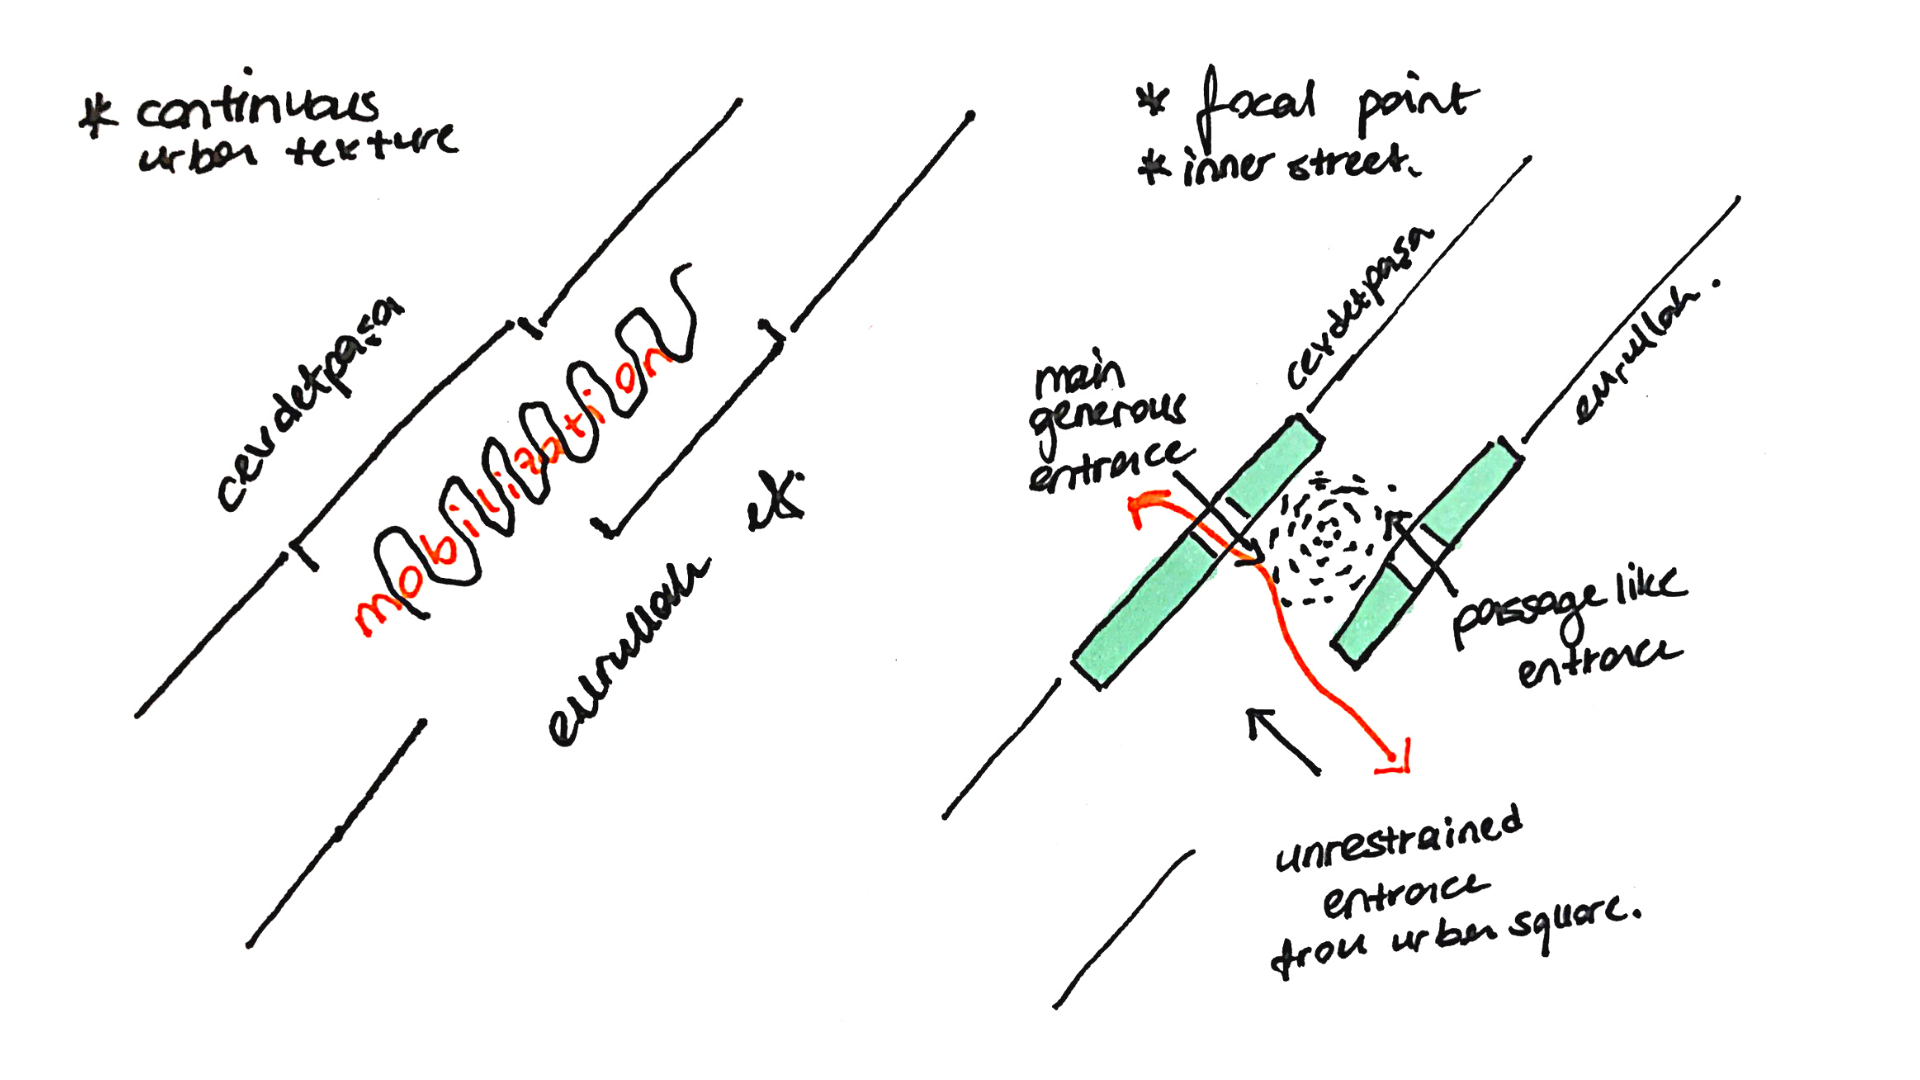 * continuous
urban texture
cevdetpaşa
mobilization
emrullah efs.
* focal point
* inner street.
cevdetpaşa
emrullah.
main
generous
entrance
passage like
entrance
unrestrained
entrance
from urban square.